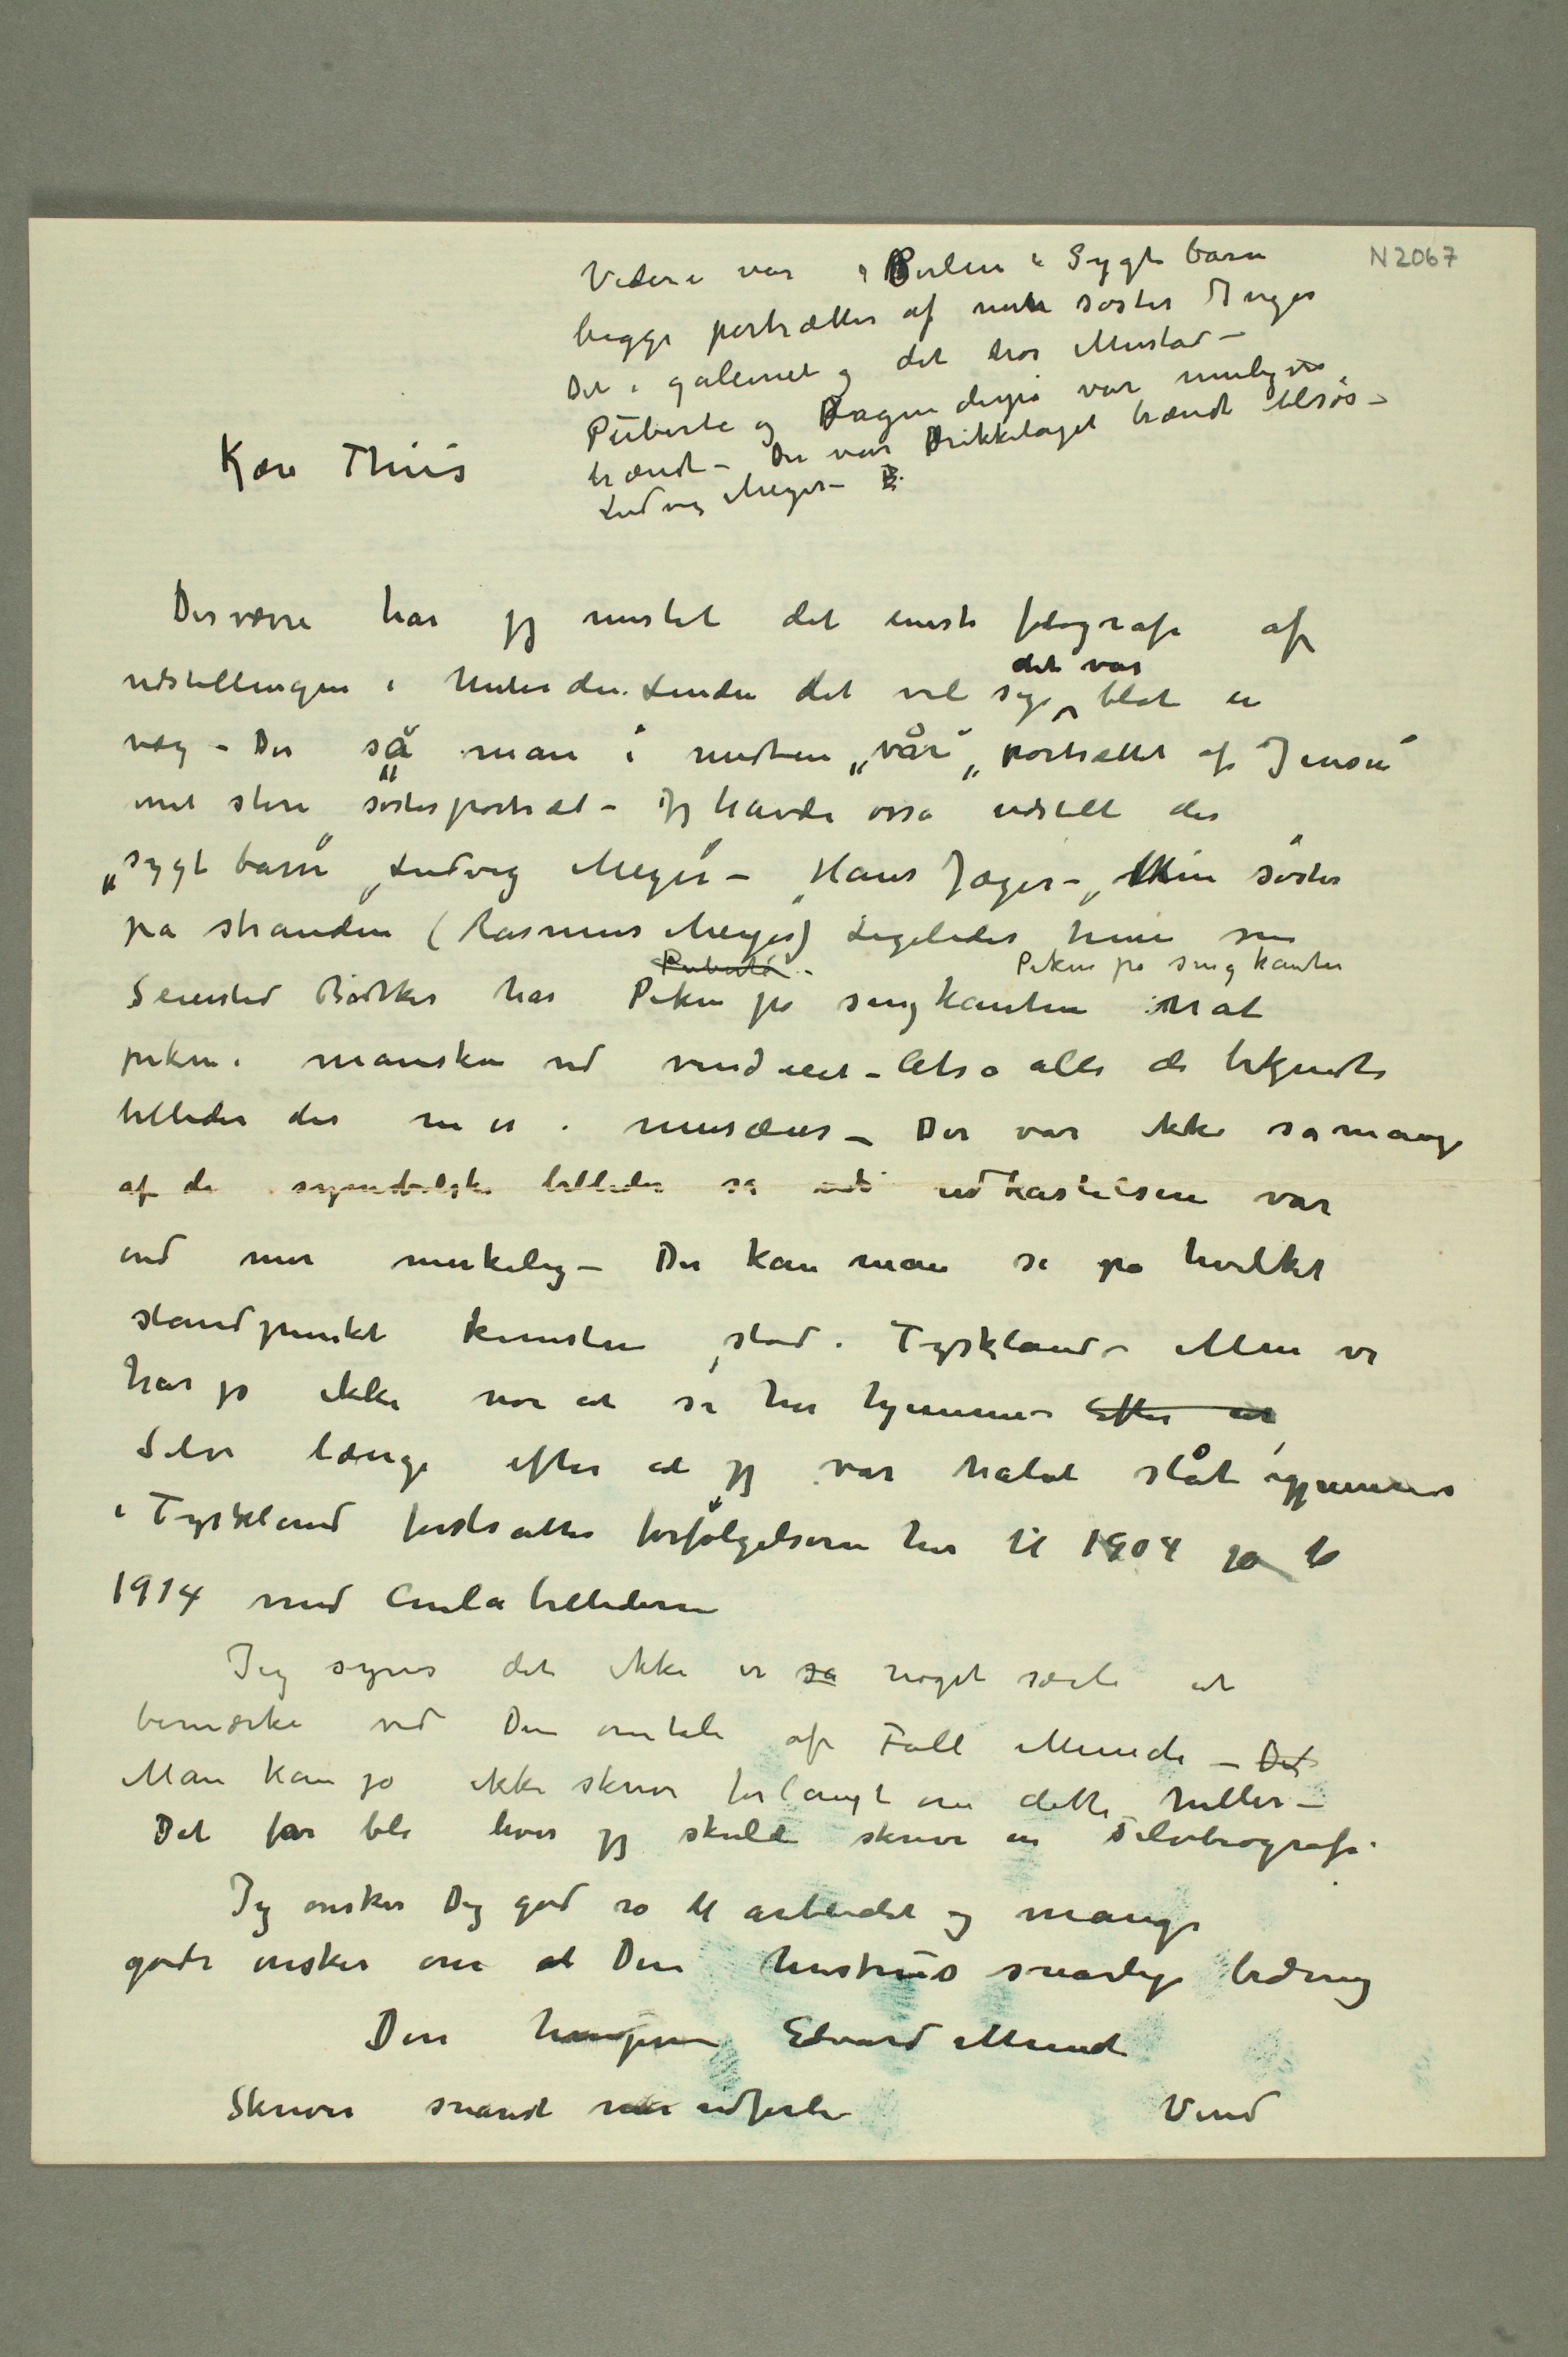 N 2067
Videre var i Berlin „Sygt barn
begge portrætter af min søster Inger
Det i galleriet og det hos Mustad –
Pubertè og Dagen derpå var muligvis
brændt – Der var Drikkelaget brændt tilsøs –
Ludvig Meyer –
Kjære Thiis
Desværre har jeg mistet det eneste fotografi af
udstillingen i Unter den Linden det vil sige det var blot en
væg – Der så man i midten „vår“, „portrættet af Jensen“
mit store søsterportræt – Jeg havde også udstillt der
„sygt barn“ „Ludvig Meyer“ – „Hans Jæger – „Min søster
på stranden“ (Rasmus Meyer) Ligeledes hune som
Pubertè – Piken på sengkanten
Seiersted Bødtker har Piken på sengkanten nat
piken i månskin ved vinduet – Altså alle de bekjendte
billeder der nu er i musæer – Der var ikke så mange
af de symbolske billeder så udkastelsen var
end mer merkelig – Der kan man se på hvilket
standpunkt kunsten stod i Tyskland – Men vi
har jo ikke nor at si her hjemme – Efter at
Selv længe efter at jeg var halvt slåt igjennem
i Tyskland fortsatte forfølgelserne her til 1904 ja til
1914 med Aulabillederne
Jeg synes det ikke er så noget særli at
bemærke ved Din omtale af Fall Munch – Det
Man kan jo ikke skrive forlangt om dette heller –
Det får bli hvis jeg skulde skrive en selvbiografi.
Jeg ønsker Dig god ro til arbeidet og mange
gode ønsker om at Din hustrus snarlige bedring
Din hengivne Edvard Munch
Skriver snarest mer udførli
Vend